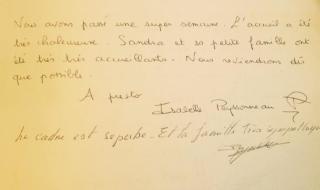 Nous avons passé une super semaine. L'accueil a été
très chaleureux. Sandra et sa petite famille ont
été très très accueillants. Nous reviendrons dès
que possible.
A presto
Isabelle
Le cadre est superbe - Et la famille très sympathique